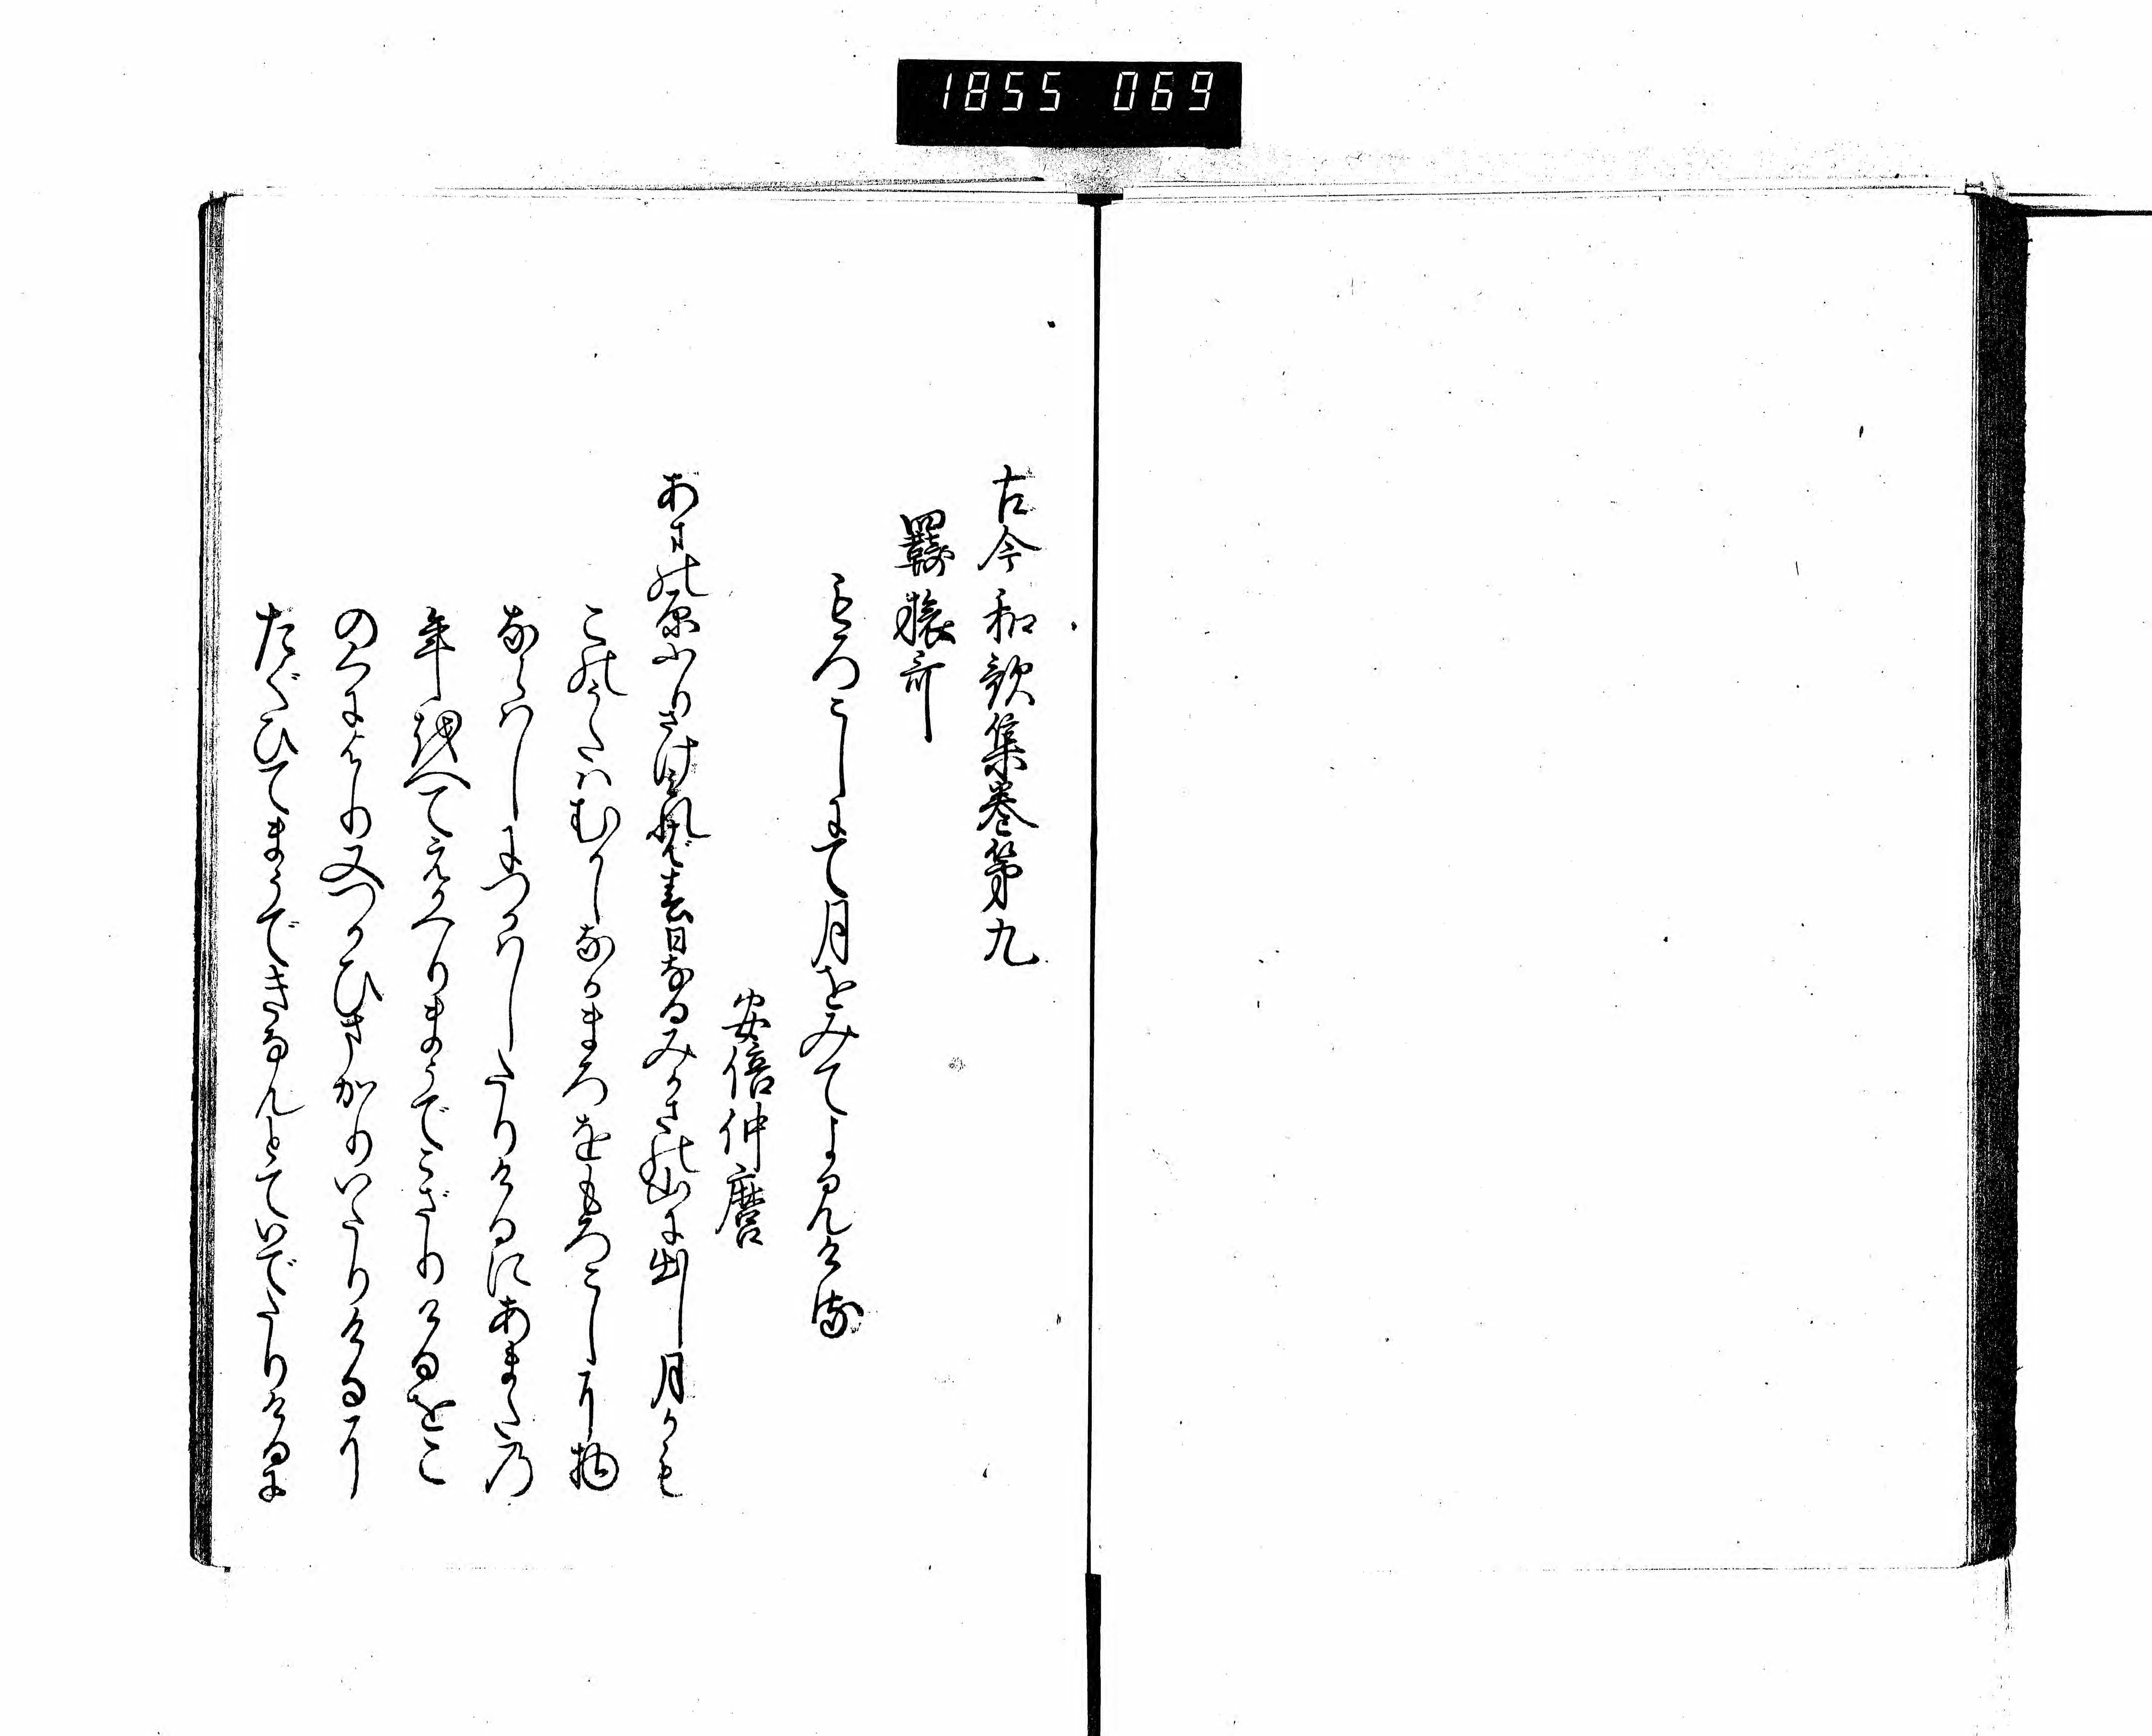 1855 069
古今和歌集巻第九
羈旅哥
もろこしにて月をみてよみける
安倍仲麿
あまの原ふりさけみれば春日なるみかさの山に出し月かも
このうたはむかしなかまろをもろこしに物
ならはしにつかはしたりけるにあまたの
年をへてえかへりまうでこざりけるをこ
のくにより又つかひまかりいたりけるに
たぐひてまうできなんとていでたりけるに